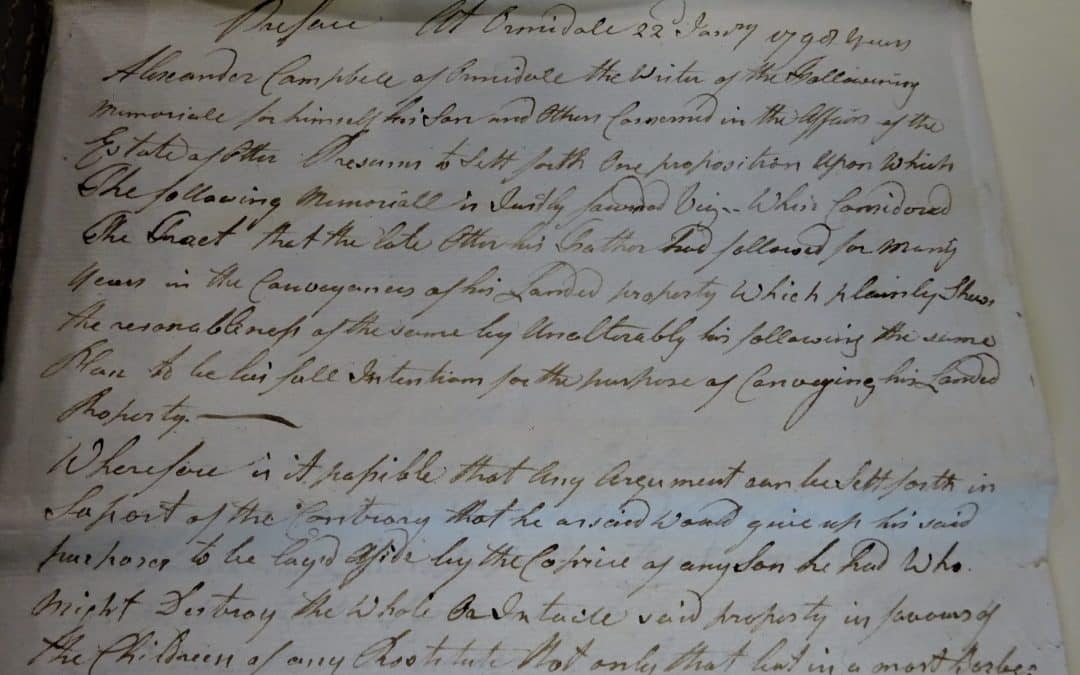 Preface At Ormidale 22d Janry 1798 years
Alexander Campbell of Ormidale the Writer of the Following
Memoriale for himself his Son and Others Conserned in the Affairs of the
Estate of Otter Presums to Sett forth One proposition Upon Which
The following Memoriall is Justly Viz--
The Tract that the late Otter his Father had followed for many
years in the Conveyances of his Landed property Which plainly Shews
the resonableness of the same by Unalterably his following the same
Plan to be his full Intentions for the purpose of Conveying his Landed
Property.
Wherefore is it possible that Any Argument can be Sett forth in
Suport of the Contrary that he would give up his said
purposes to be layd Aside by the Caprice of any Son he had Who
might Destroy the Whole Or said property in favours of
the Children of any Prostitute Not only that but in a most